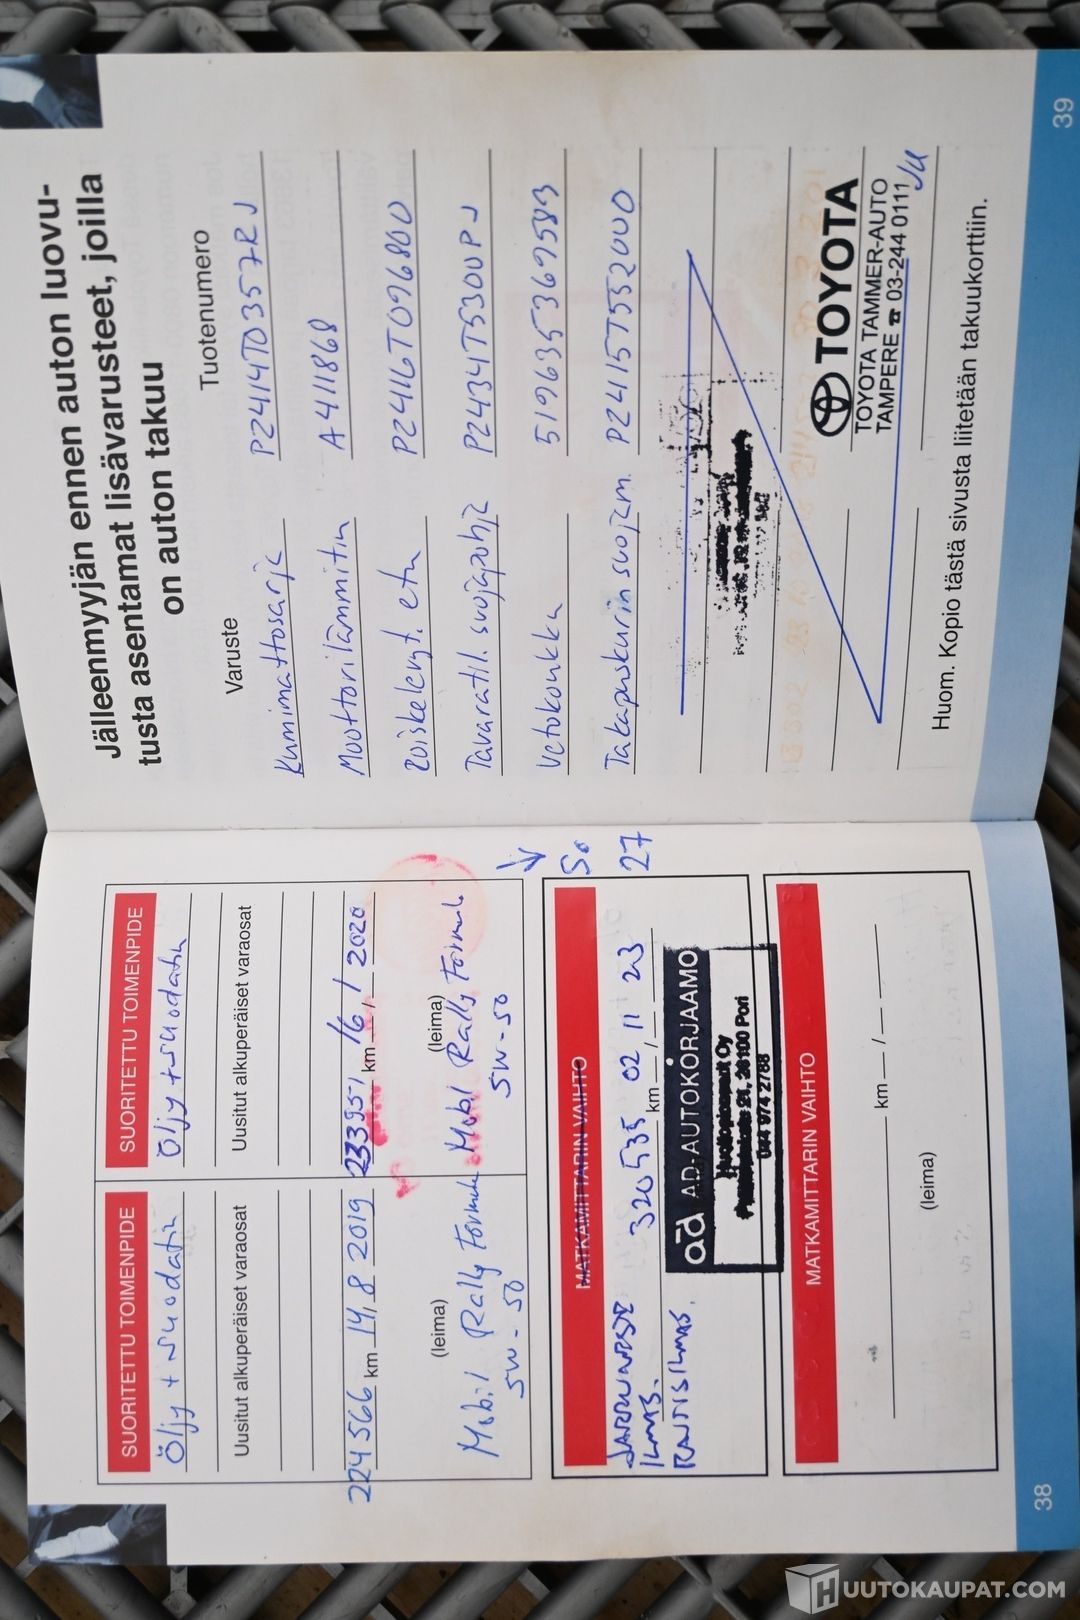 SUORITETTU TOIMENPIDE
Öljy + suodatin
Uusitut alkuperäiset varaosat
224 566 km 14, 8 2019
(leima)
Mobil Rally Formula
5W-50
SUORITETTU TOIMENPIDE
Öljy + suodatin
Uusitut alkuperäiset varaosat
233951 km 16, 1 2020
(leima)
Mobil Rally Formula
5W-50
MATKAMITTARIN VAIHTO
JARRUNESTE 320 535 km 02, 11 23
ILMS.
RAITISILMAS.
ad AD-AUTOKORJAAMO
28100 Pori
044 974 2788
50
27
MATKAMITTARIN VAIHTO
km / —
(leima)
38
Jälleenmyyjän ennen auton luovu-
tusta asentamat lisävarusteet, joilla
on auton takuu
Varuste Tuotenumero
Kumimattosarja PZ414T0357RJ
Moottorilämmitin A411868
roiskekryt. etu PZ416T096800
Tavaratil. suojapohja PZ434T5300PJ
Vetokoukku 519635369583
Takapuskurin suojam. PZ415T532000
TOYOTA
TOYOTA TAMMER-AUTO
TAMPERE ☎ 03-244 0111
Huom. Kopio tästä sivusta liitetään takuukorttiin.
39
HUUTOKAUPAT.COM